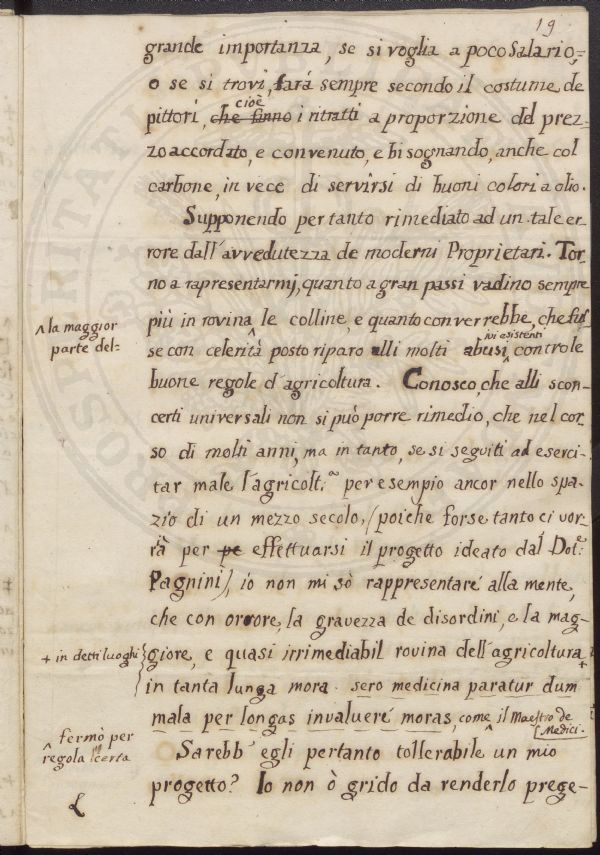 19
grande importanza, se si voglia a poco salario,
o se si trovi, fará sempre secondo il costume de
pittori, che fanno cioè i ritratti a proporzione del prez-
zo accordato, e convenuto, e bisognando, anche col
carbone, in vece di servirsi di buoni colori a olio.
Supponendo per tanto rimediato ad un tale er-
rore dall'avvedutezza de moderni Proprietari. Tor-
no a rapresentarmi, quanto a gran passi vadino sempre
più in rovina ^ le colline, e quanto converrebbe, che fus-
^ la maggior
parte del:
se con celerità posto riparo alli molti abusi ^ ivi esistenti controle
buone regole d'agricoltura. Conosco, che alli scon-
certi universali non si può porre rimedio, che nel cor-
so di molti anni, ma in tanto, se si seguiti ad eserci-
tar male l'agricolt.ra per esempio ancor nello spa-
zio di un mezzo secolo, (poiche forse tanto ci vor-
rà per pe effettuarsi il progetto ideato dal Dot.e
Pagnini), io non mi sò rappresentare alla mente,
che con orrore, la gravezza de disordini, e la mag-
giore, e quasi irrimediabil rovina dell'agricoltura +
+ in detti luoghi
in tanta lunga mora. sero medicina paratur dum
mala per longas invaluere moras, come ^ il Maestro de
Medici.
^ fermò per
regola certa
Sarebb' egli pertanto tollerabile un mio
progetto? Io non ò grido da renderlo prege-